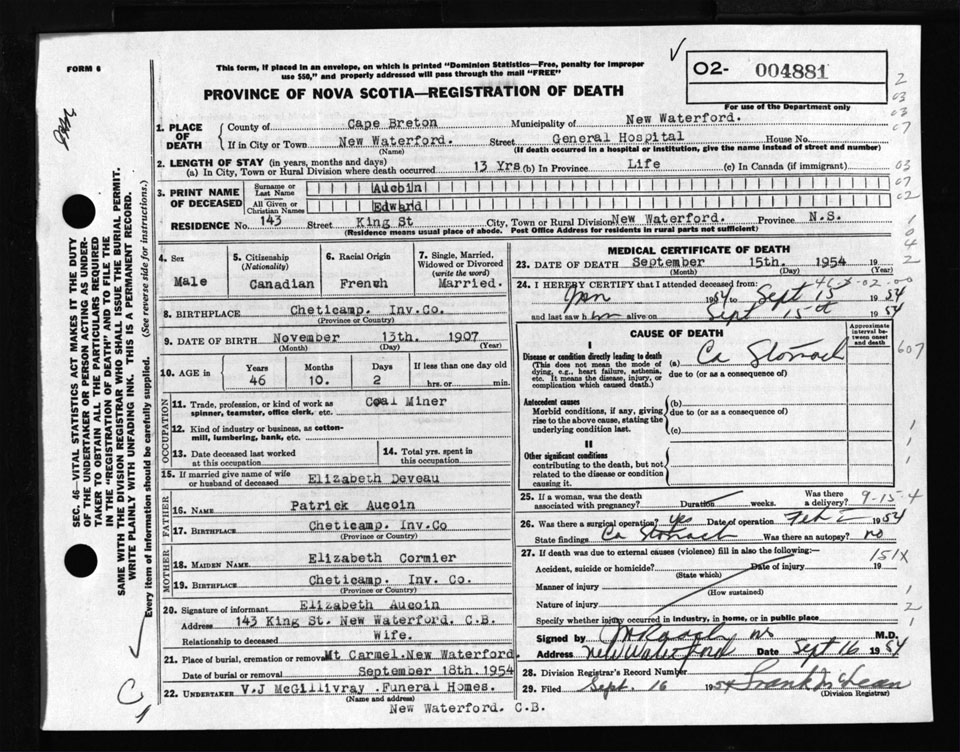 FORM 6
This form, if placed in an envelope, on which is printed "Dominion Statistics—Free, penalty for improper
use $50," and properly addressed will pass through the mail "FREE"
PROVINCE OF NOVA SCOTIA—REGISTRATION OF DEATH
02- 004881
For use of the Department only
1. PLACE OF DEATH
County of Cape Breton Municipality of New Waterford.
If in City or Town New Waterford. Street General Hospital House No.
(Name) (If death occurred in a hospital or institution, give the name instead of street and number)
2. LENGTH OF STAY (in years, months and days)
(a) In City, Town or Rural Division where death occurred 13 Yrs (b) In Province Life (c) In Canada (if immigrant)
3. PRINT NAME OF DECEASED
Surname or Last Name Aucoin
All Given or Christian Names Edward
RESIDENCE No. 143 Street King St City, Town or Rural Division New Waterford. Province N.S.
(Residence means usual place of abode. Post Office Address for residents in rural parts not sufficient)
4. Sex
Male
5. Citizenship
(Nationality)
Canadian
6. Racial Origin
French
7. Single, Married, Widowed or Divorced
(write the word)
Married.
8. BIRTHPLACE Cheticamp. Inv.Co.
(Province or Country)
9. DATE OF BIRTH November 13th. 1907
(Month) (Day) (Year)
10. AGE in
Years Months Days If less than one day old
46 10. 2 hrs. or min.
OCCUPATION
11. Trade, profession, or kind of work as
spinner, teamster, office clerk, etc. Coal Miner
12. Kind of industry or business, as cotton-
mill, lumbering, bank, etc.
13. Date deceased last worked
at this occupation
14. Total yrs. spent in
this occupation
15. If married give name of wife
or husband of deceased Elizabeth Deveau
FATHER
16. NAME Patrick Aucoin
17. BIRTHPLACE Cheticamp. Inv.Co
(Province or Country)
MOTHER
18. MAIDEN NAME Elizabeth Cormier
19. BIRTHPLACE Cheticamp. Inv. Co.
(Province or Country)
20. Signature of informant Elizabeth Aucoin
Address 143 King St. New Waterford. C.B.
Relationship to deceased Wife.
21. Place of burial, cremation or removal Mt Carmel.New Waterford.
Date of burial or removal September 18th.1954
22. UNDERTAKER V.J McGillivray .Funeral Homes.
(Name and address)
New Waterford. C.B.
MEDICAL CERTIFICATE OF DEATH
23. DATE OF DEATH September 15th. 1954 19
(Month) (Day) (Year)
24. I HEREBY CERTIFY that I attended deceased from:
Jan 1954 to Sept 15 1954
and last saw him alive on Sept 15 1954
CAUSE OF DEATH
Approximate interval between onset and death
I
Disease or condition directly leading to death
(This does not mean the mode of
dying, e.g., heart failure, asthenia,
etc. It means the disease, injury, or
complication which caused death.)
(a) Ca Stomach
due to (or as a consequence of)
Antecedent causes
Morbid conditions, if any, giving
rise to the above cause, stating the
underlying condition last.
(b)
due to (or as a consequence of)
(c)
II
Other significant conditions
contributing to the death, but not
related to the disease or condition
causing it.
25. If a woman, was the death
associated with pregnancy? Duration weeks. Was there
a delivery?
9-15-4
26. Was there a surgical operation? yes Date of operation Feb 1954
State findings Ca Stomach Was there an autopsy? no
27. If death was due to external causes (violence) fill in also the following:—
151X
Accident, suicide or homicide? Date of injury 19
(State which)
Manner of injury
(How sustained)
Nature of injury
Specify whether injury occurred in industry, in home, or in public place
Signed by M.D.
Address New Waterford Date Sept 16 1954
28. Division Registrar's Record Number
29. Filed Sept. 16 1954
(Division Registrar)
SEC. 46—VITAL STATISTICS ACT MAKES IT THE DUTY
OF THE UNDERTAKER OR PERSON ACTING AS UNDER-
TAKER TO OBTAIN ALL THE PARTICULARS REQUIRED
IN THE "REGISTRATION OF DEATH" AND TO FILE THE
SAME WITH THE DIVISION REGISTRAR WHO SHALL ISSUE THE BURIAL PERMIT.
WRITE PLAINLY WITH UNFADING INK. THIS IS A PERMANENT RECORD.
Every item of information should be carefully supplied. (See reverse side for instructions.)
2
03
03
07
03
07
02
1
0
4
2
607
1
1
1
1
2
1